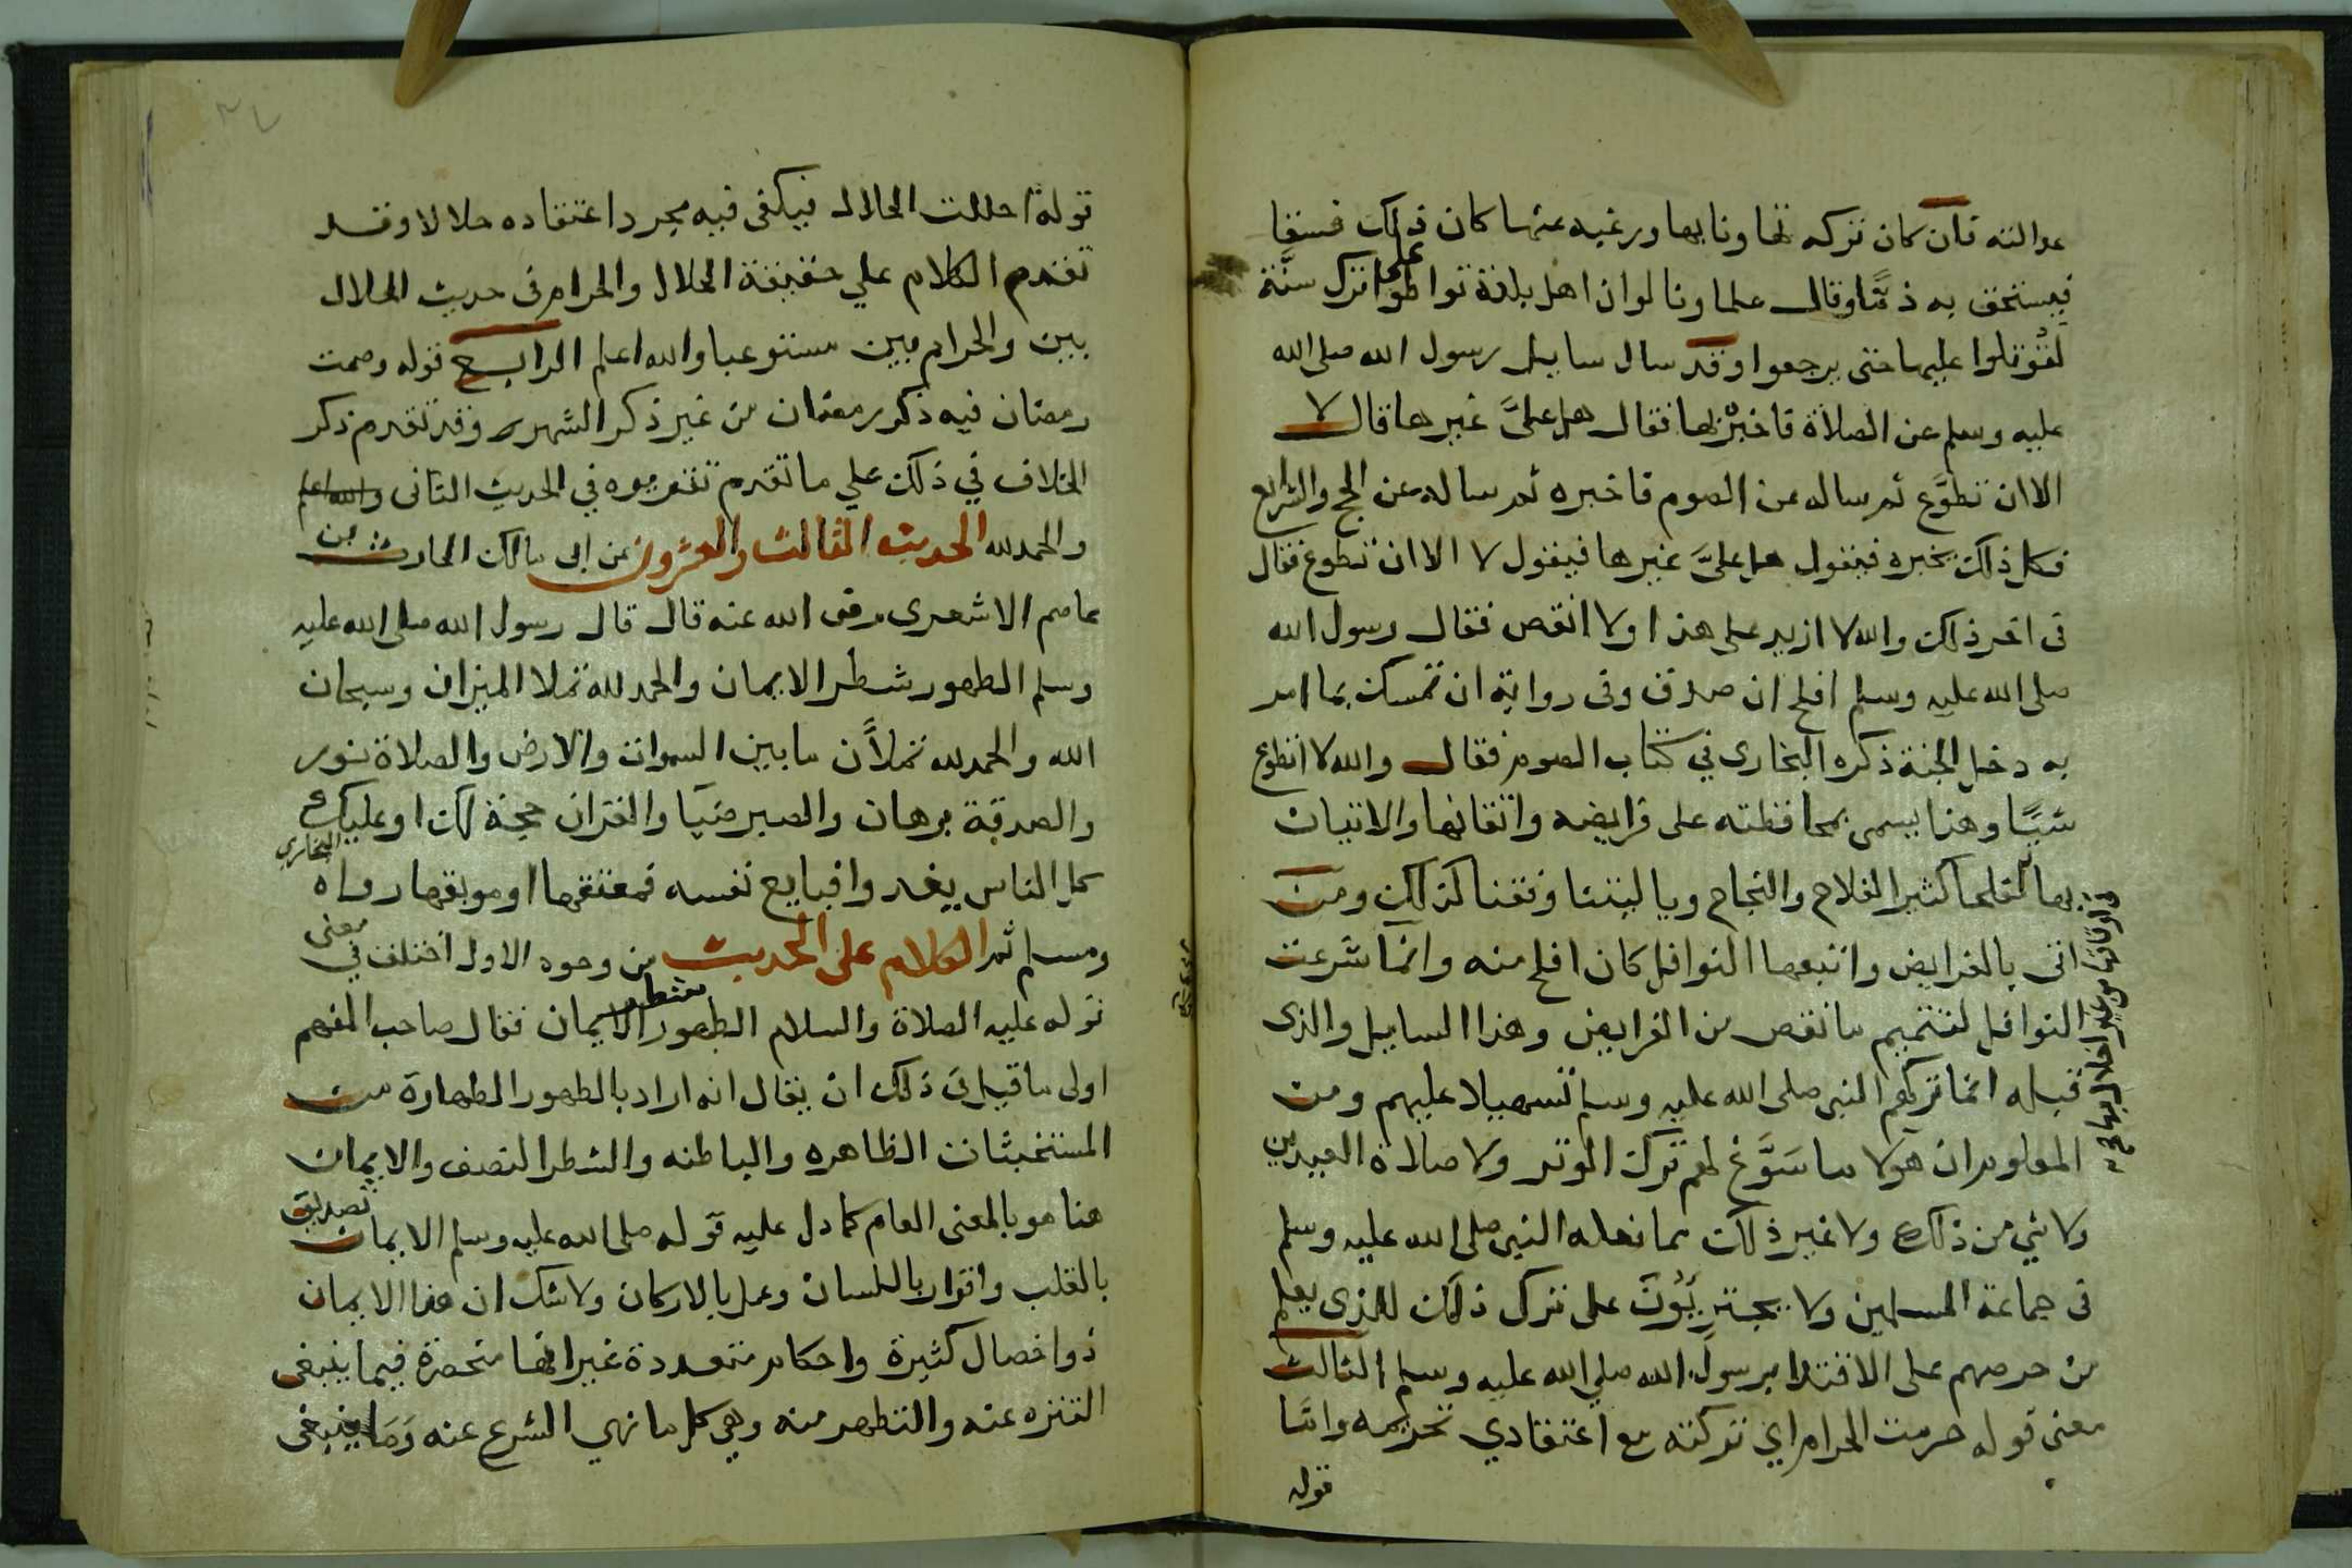 عدالته فان كان تركه تهاونا بها ورغبه عنها كان ذلك فسقا
فيستحق به ذمًّا وقال علماونا لوان اهل بلدة تواطوا على ترك سنّة
لقُوتلوا عليها حتى يرجعوا وقد سال سايل رسول الله صلى الله
عليه وسلم عن الصلاة فاخبره بها فقال هل علىَّ غيرها قال لا
الا ان تطوَّع ثم ساله عن الصوم فاخبره ثم ساله عن الحج والشرايع
فكل ذلك يخبره فيقول هل علىَّ غيرها فيقول لا الا ان تطوع فقال
فى اخر ذلك والله لا ازيد على هذا ولا انقص فقال رسول الله
صلى الله عليه وسلم افلح ان صدق وفى رواية ان تمسك بما امر
به دخل الجنة ذكره البخارى في كتاب الصوم فقال والله لا اتطوع
شيًا وهنا يسمى بمحافظته على فرايضه واتقانها والاتيان
بها فى اوقاتها من غير اخلال بها صح
فلحا كثير الفلاح والنجاح ويا ليتنا وفقنا كذلك ومن
اتى بالفرايض واتبعها النوافل كان افلح منه وانما شرعت
النوافل لتتميم ما نقص من الفرايض وهذا السايل والذى
قبله انما تركهم النبى صلى الله عليه وسلم تسهيلا عليهم ومن
المعلوم ان هولا ما سَوَّغ لهم ترك الوتر ولا صلاة العيدين
ولا شي من ذلك ولا غير ذلك مما فعله النبى صلى الله عليه وسلم
فى جماعة المسلمين ولا يجترِيُونَ على ترك ذلك للذى يعلم
من حرصهم على الاقتدا برسول الله صلي الله عليه وسلم الثالث
معنى قوله حرمت الحرام اي تركته مع اعتقادي تحريمه واما
قوله
قوله احللت الحلال فيكفى فيه مجرد اعتقاده حلالا وقد
تقدم الكلام علي حقيقة الحلال والحرام فى حديث الحلال
بين والحرام بين مستوعبا والله اعلم الرابع قوله وصمت
رمضان فيه ذكر رمضان من غير ذكر الشهر وقد تقدم ذكر
الخلاف في ذلك علي ما تقدم تقريره في الحديث الثانى والله اعلم
والحمد لله الحديث الثالث والعشرون عن ابى مالك الحارث بن
عاصم الاشعرى رضى الله عنه قال قال رسول الله صلى الله عليه
وسلم الطهور شطر الايمان والحمد لله تملا الميزان وسبحان
الله والحمد لله تملأن ما بين السموات والارض والصلاة نور
والصدقة برهان والصبر ضيا والقران حجة لك او عليك
كل الناس يغدوا فبايع نفسه فمعتقها او موبقها رواه البخارى
ومسلم ثم الكلام على الحديث من وجوه الاول اختلف في معنى
قوله عليه الصلاة والسلام الطهور شطر الايمان فقال صاحب المفهم
اولى ما قيل فى ذلك ان يقال انه اراد بالطهور الطهارة من
المستخبثات الظاهره والباطنه والشطر النصف والايمان
هنا هو بالمعنى العام كما دل عليه قوله صلى الله عليه وسلم الايمان تصديق
بالقلب واقرار باللسان وعمل بالاركان ولا شك ان هذا الايمان
ذوا خصال كثيرة واحكام متعددة غير انها منحصرة فيما ينبغى
التنزه عنه والتطهر منه وهي كل ما نهي الشرع عنه وَمَا ينبغى